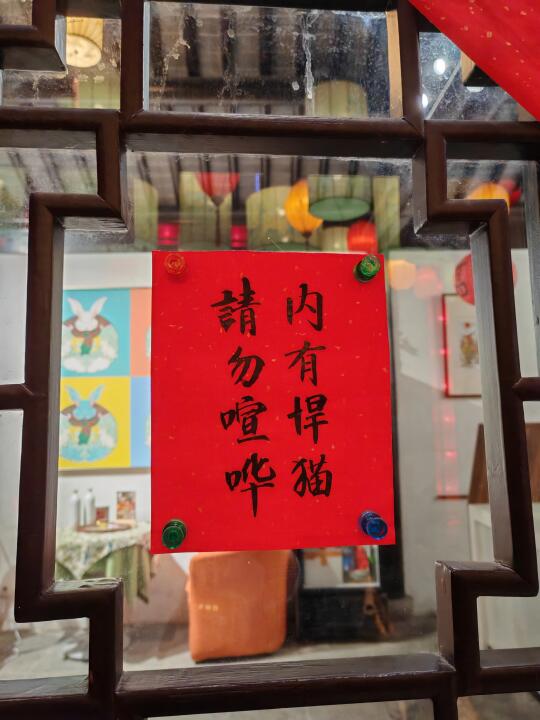 内有悍猫
請勿喧哗